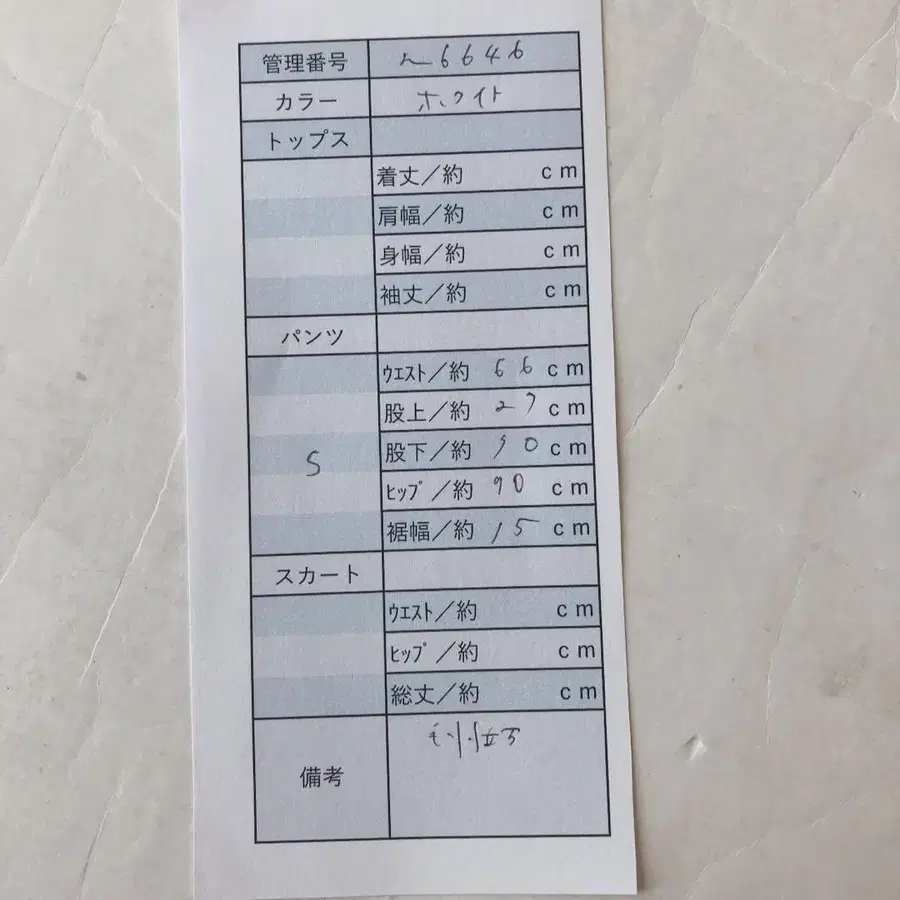 管理番号 26646
カラー ホワイト
トップス
着丈／約 cm
肩幅／約 cm
身幅／約 cm
袖丈／約 cm
パンツ
ｳｴｽﾄ／約 66 cm
股上／約 27 cm
S
股下／約 90 cm
ﾋｯﾌﾟ／約 90 cm
裾幅／約 15 cm
スカート
ｳｴｽﾄ／約 cm
ﾋｯﾌﾟ／約 cm
総丈／約 cm
備考